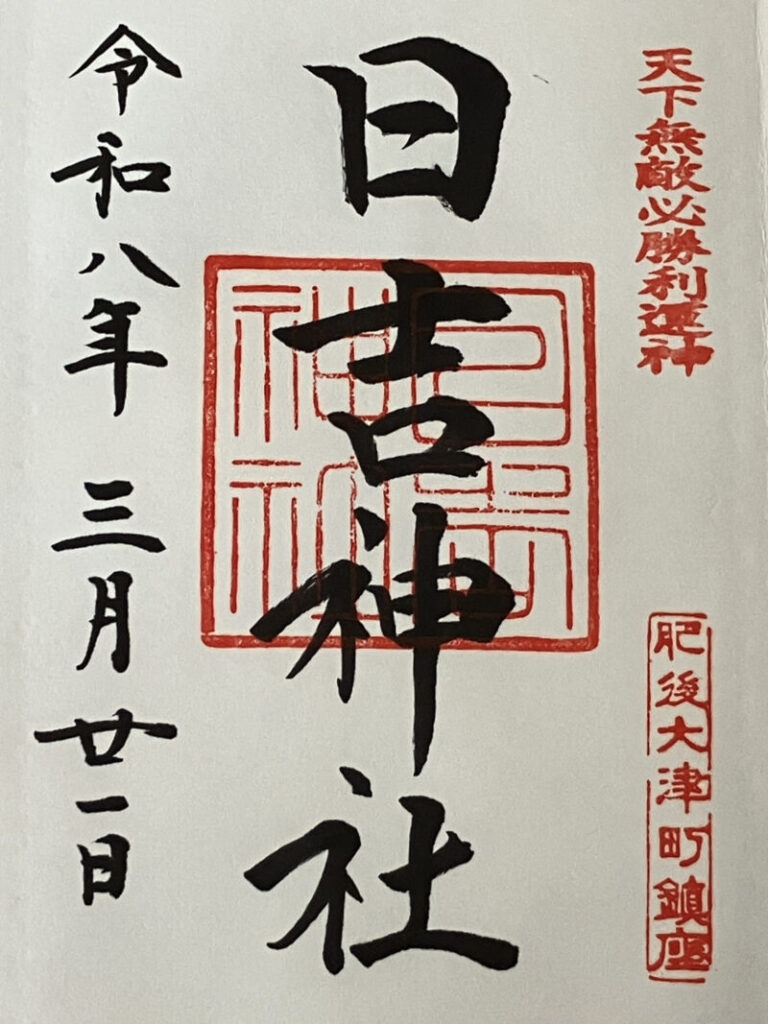 天下無敵必勝利運神
肥後大津町鎮座
日吉神社
日吉神社
令和八年三月廿一日